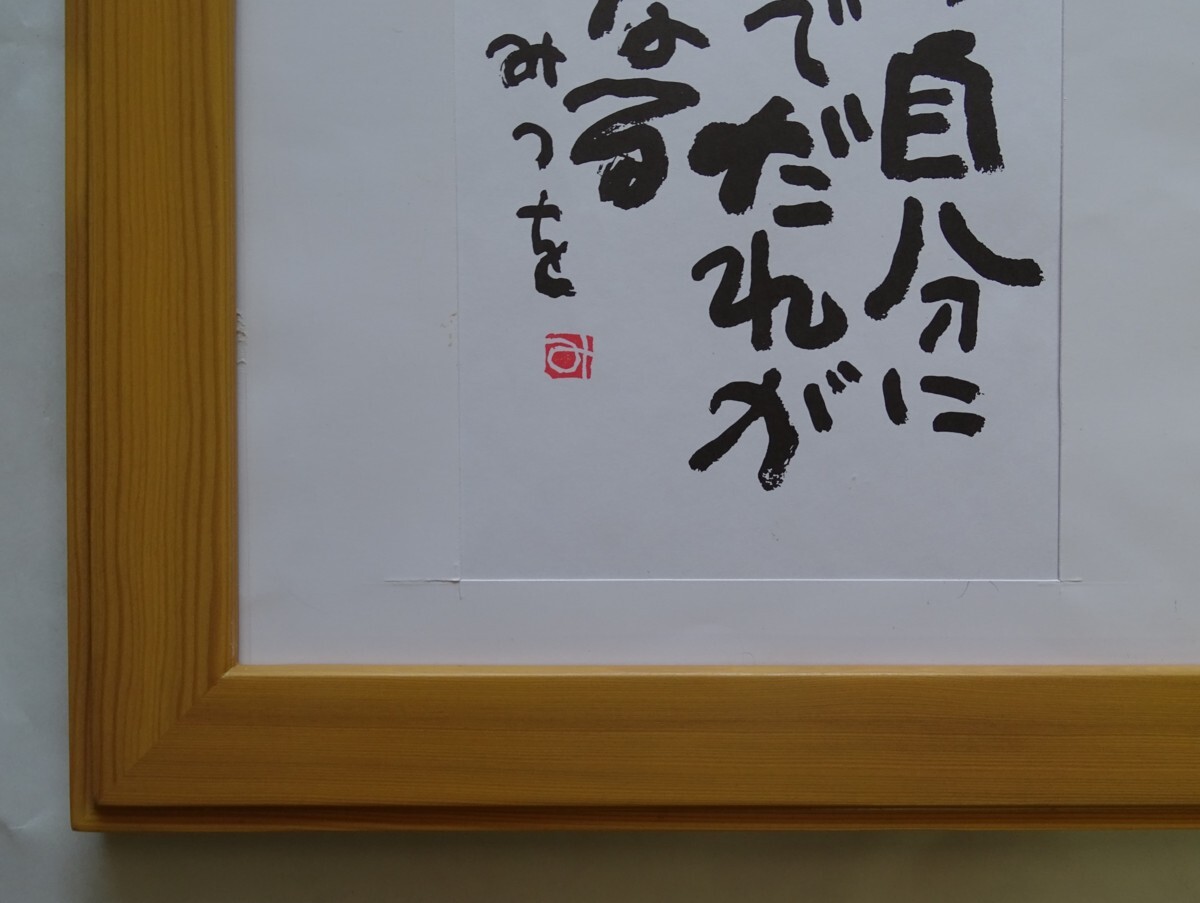 自分に
でだれが
なる
みつを
み